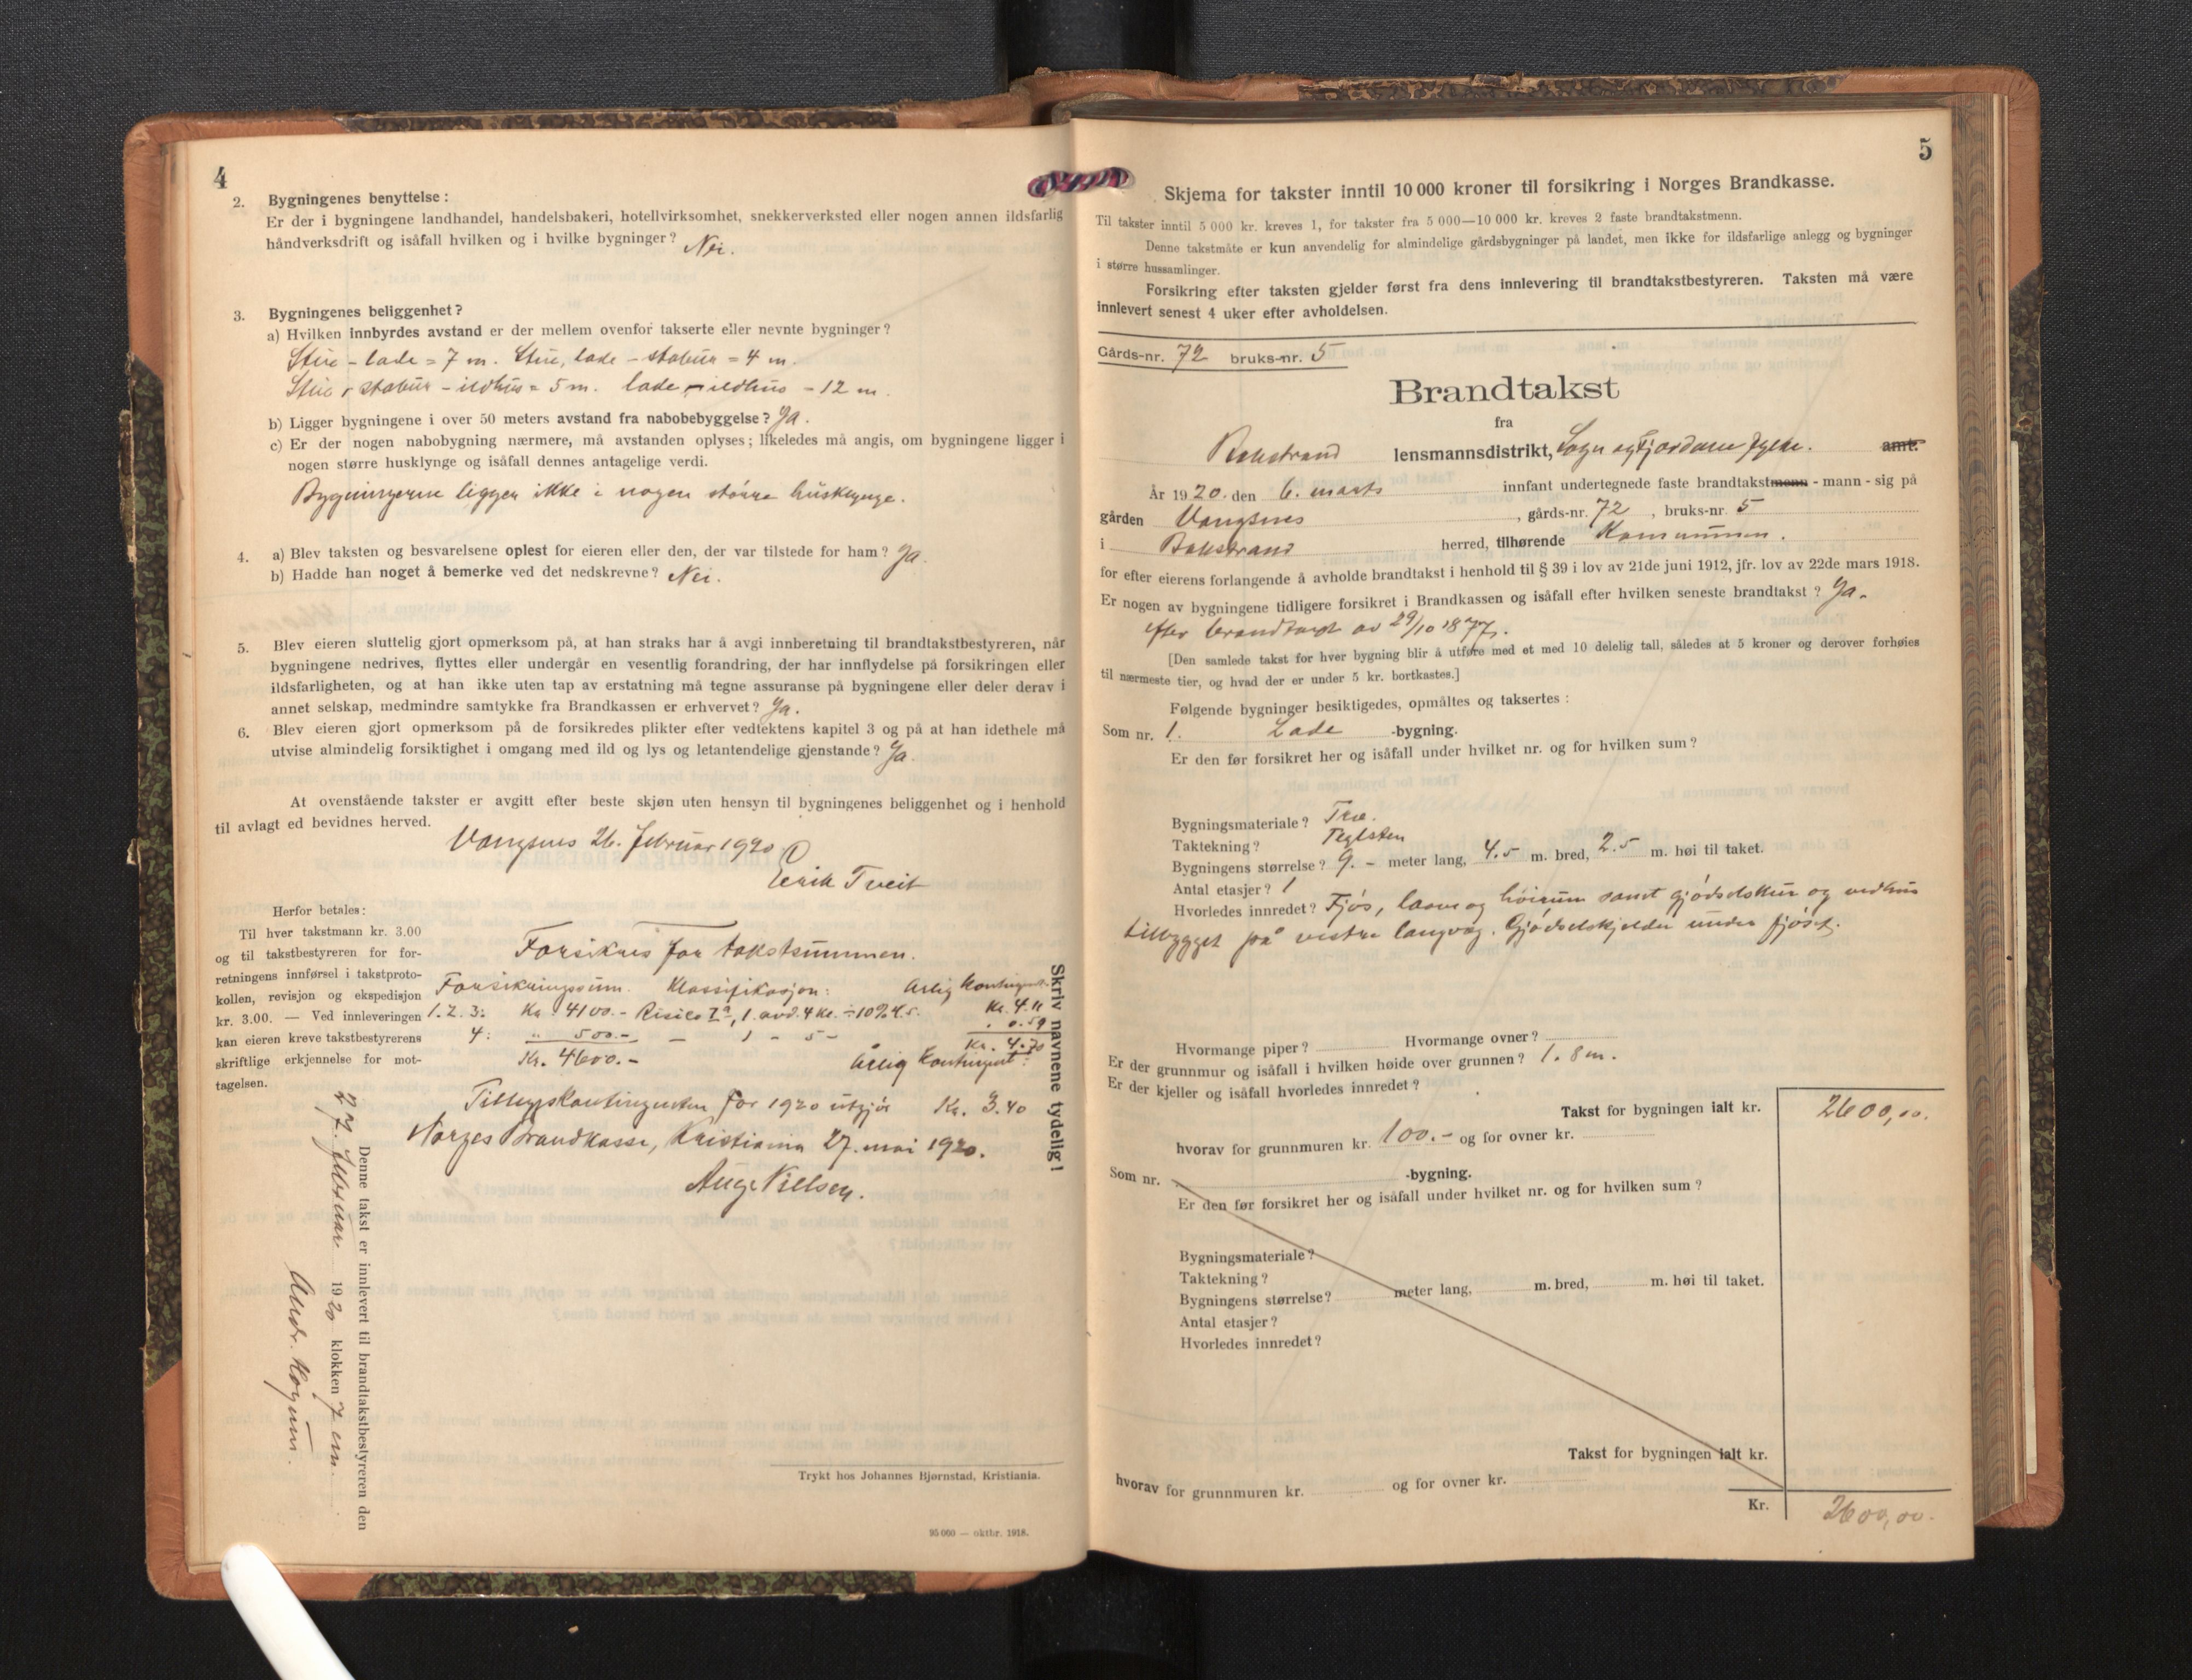 4
2. Bygningenes benyttelse :
Er der i bygningene landhandel, handelsbakeri, hotellvirksomhet, snekkerverksted eller nogen annen ildsfarlig
håndverksdrift og isåfall hvilken og i hvilke bygninger? Nei.
3. Bygningenes beliggenhet?
a) Hvilken innbyrdes avstand er der mellem ovenfor takserte eller nevnte bygninger?
Stue - lade = 7 m. Stue, lade - stabur = 4 m.
Stue, stabur - ildhus = 5 m. lade - ildhus - 12 m.
b) Ligger bygningene i over 50 meters avstand fra nabobebyggelse? Ja.
c) Er der nogen nabobygning nærmere, må avstanden oplyses; likeledes må angis, om bygningene ligger i
nogen større husklynge og isåfall dennes antagelige verdi.
Bygningerne ligger ikke i nogen større husklynge.
4. a) Blev taksten og besvarelsene oplest for eieren eller den, der var tilstede for ham? Ja.
b) Hadde han noget å bemerke ved det nedskrevne? Nei.
5. Blev eieren sluttelig gjort opmerksom på, at han straks har å avgi innberetning til brandtakstbestyreren, når
bygningene nedrives, flyttes eller undergår en vesentlig forandring, der har innflydelse på forsikringen eller
ildsfarligheten, og at han ikke uten tap av erstatning må tegne assuranse på bygningene eller deler derav i
annet selskap, medmindre samtykke fra Brandkassen er erhvervet? Ja.
6. Blev eieren gjort opmerksom på de forsikredes plikter efter vedtektens kapitel 3 og på at han idethele må
utvise almindelig forsiktighet i omgang med ild og lys og letantendelige gjenstande? Ja.
At ovenstående takster er avgitt efter beste skjøn uten hensyn til bygningenes beliggenhet og i henhold
til avlagt ed bevidnes herved.
Vangsnes 26. februar 1920
Erik Tveit
Herfor betales:
Til hver takstmann kr. 3.00
og til takstbestyreren for for-
retningens innførsel i takstproto-
kollen, revisjon og ekspedisjon
kr. 3.00. — Ved innleveringen
kan eieren kreve takstbestyrerens
skriftlige erkjennelse for mot-
tagelsen.
Forsikres for takstsummen.
Forsikringssum. Klassifikasjon: Årlig kontingent.
1. 2. 3: Kr. 4100.- Risiko Ia, 1. avd. 4 kl. ÷ 10% Kr. 4.11
4: " 500.- - 1 - 5 - " 0.59
Kr. 4600.- Kr. 4.70
Årlig kontingent:
Tilleggskontingenten for 1920 utgjør Kr. 3.40
Norges Brandkasse, Kristiania 27. mai 1920.
Aug. Nielsen.
Skriv navnene tydelig!
Denne takst er innlevert til brandtakstbestyreren den
27. februar 1920 klokken 7 em.
Trykt hos Johannes Bjørnstad, Kristiania.
95 000 — oktbr. 1918.
5
Skjema for takster inntil 10 000 kroner til forsikring i Norges Brandkasse.
Til takster inntil 5 000 kr. kreves 1, for takster fra 5 000—10 000 kr. kreves 2 faste brandtakstmenn.
Denne takstmåte er kun anvendelig for almindelige gårdsbygninger på landet, men ikke for ildsfarlige anlegg og bygninger
i større hussamlinger.
Forsikring efter taksten gjelder først fra dens innlevering til brandtakstbestyreren. Taksten må være
innlevert senest 4 uker efter avholdelsen.
Gårds-nr. 72 bruks-nr. 5
Brandtakst
fra
Balestrand lensmannsdistrikt, Sogn og Fjordane fylke. amt.
År 1920. den 6. marts innfant undertegnede faste brandtakstmenn - mann - sig på
gården Vangsnes, gårds-nr. 72, bruks-nr. 5
i Balestrand herred, tilhørende Kommunen.
for efter eierens forlangende å avholde brandtakst i henhold til § 39 i lov av 21de juni 1912, jfr. lov av 22de mars 1918.
Er nogen av bygningene tidligere forsikret i Brandkassen og isåfall efter hvilken seneste brandtakst ? Ja.
efter brandtakst av 29/10 1877.
[Den samlede takst for hver bygning blir å utføre med et med 10 delelig tall, således at 5 kroner og derover forhøies
til nærmeste tier, og hvad der er under 5 kr. bortkastes.]
Følgende bygninger besiktigedes, opmåltes og taksertes :
Som nr. 1. Lade -bygning.
Er den før forsikret her og isåfall under hvilket nr. og for hvilken sum?
Bygningsmateriale? Træ.
Taktekning? Teglsten
Bygningens størrelse? 9. - meter lang, 4.5 m. bred, 2.5 m. høi til taket.
Antal etasjer? 1
Hvorledes innredet? Fjøs, laave og høirum samt gjødselskur og vedhus
tilbygget på vestre langvæg. Gjødselskjelder under fjøset.
Hvormange piper? Hvormange ovner?
Er der grunnmur og isåfall i hvilken høide over grunnen? 1.8 m.
Er der kjeller og isåfall hvorledes innredet?
Takst for bygningen ialt kr. 2600,00.
hvorav for grunnmuren kr. 100.- og for ovner kr.
Som nr. -bygning.
Er den før forsikret her og isåfall under hvilket nr. og for hvilken sum?
Bygningsmateriale?
Taktekning?
Bygningens størrelse? meter lang, m. bred, m. høi til taket.
Antal etasjer?
Hvorledes innredet?
Takst for bygningen ialt kr.
hvorav for grunnmuren kr. og for ovner kr.
Kr. 2600,00.